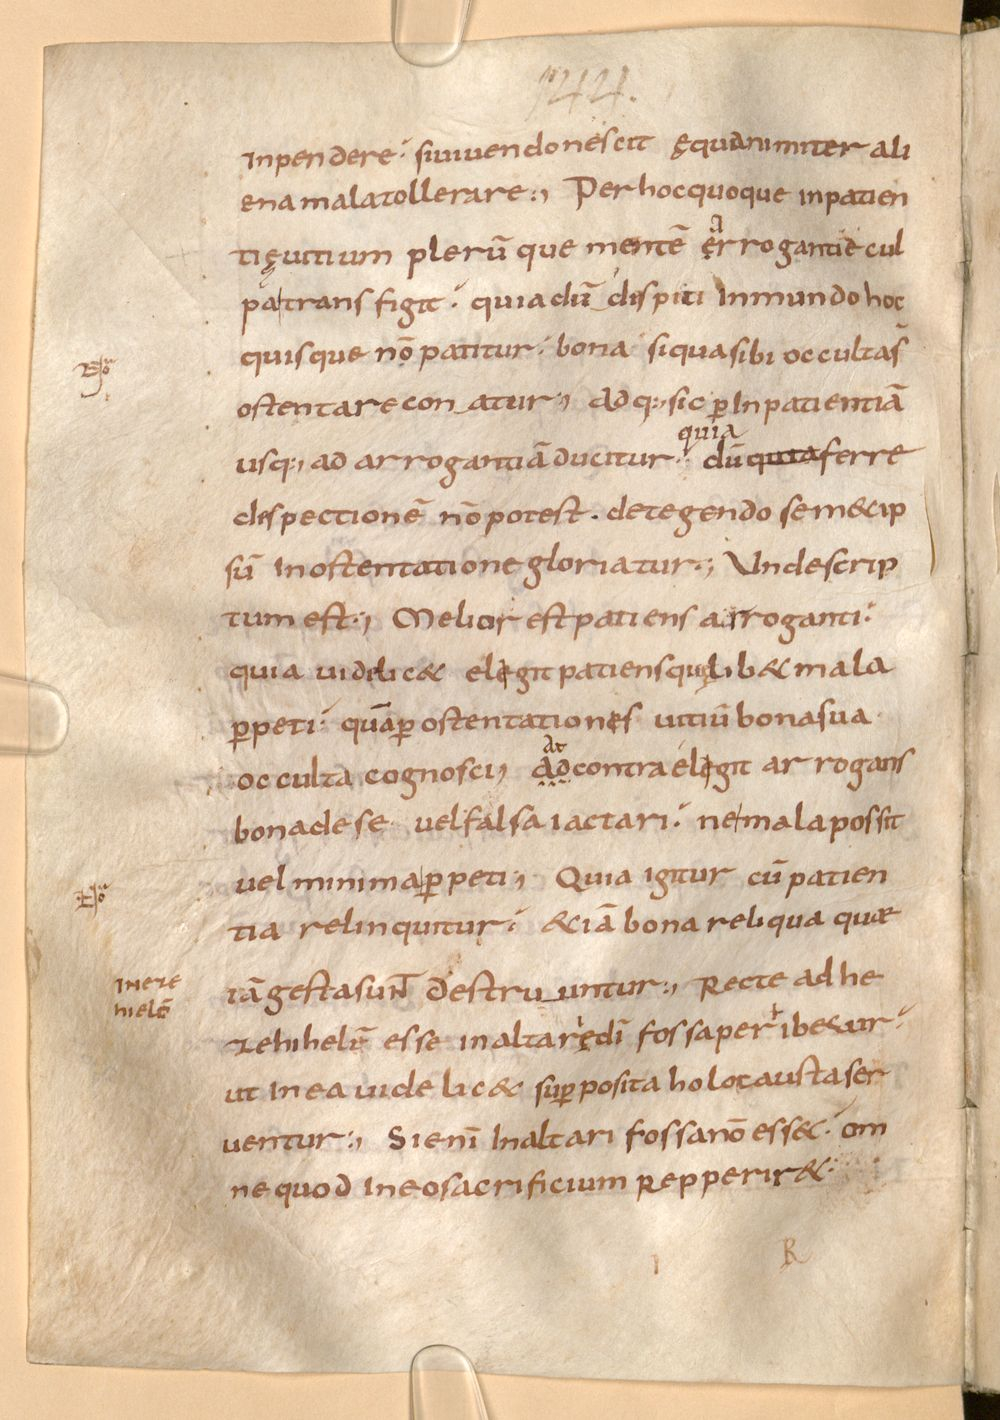 144.
inpendere. si uiuendo nescit ęquanimiter ali
ena mala tollerare:, Per hoc quoque inpatien
tię uitium plerū que mentē ęrrogantię cul
a
pa transfigit. quia dū dispiti in mundo hoc
quisque nō patitur. bona siqua sibi occulta s̄
ostentare con_atur:, adq:, sic ꝑ inpatientiā
usq:, ad arrogantiā ducitur. dū quia ferre
quia
despectionē nō potest. detegendo sem&ip
sū in ostentatione gloriatur:, Unde scrip
tum est:, Melior est patiens arroganti.
quia uidelic& elegit patiens quęlib& mala
ꝑpeti. quā ꝑ ostentationes uitiū bona sua
occulta cognosci, ad contra elegit arrogans
at
bona de se uel falsa iactari. ne mala possit
uel minima ꝑpeti:, Quia igitur cū patien
tia relinquitur. &iā bona reliqua quæ
iā gesta sunt destru_untur:, Recte ad he
in eze
hielē
zehihelē esse in altarę dī fossa per ibe&ur.
ut in ea uidelic& suꝑposita holocausta ser
uentur:, Si enī in altari fossa nō ess&. om
ne quod in eo sacrificium repperir&.
R